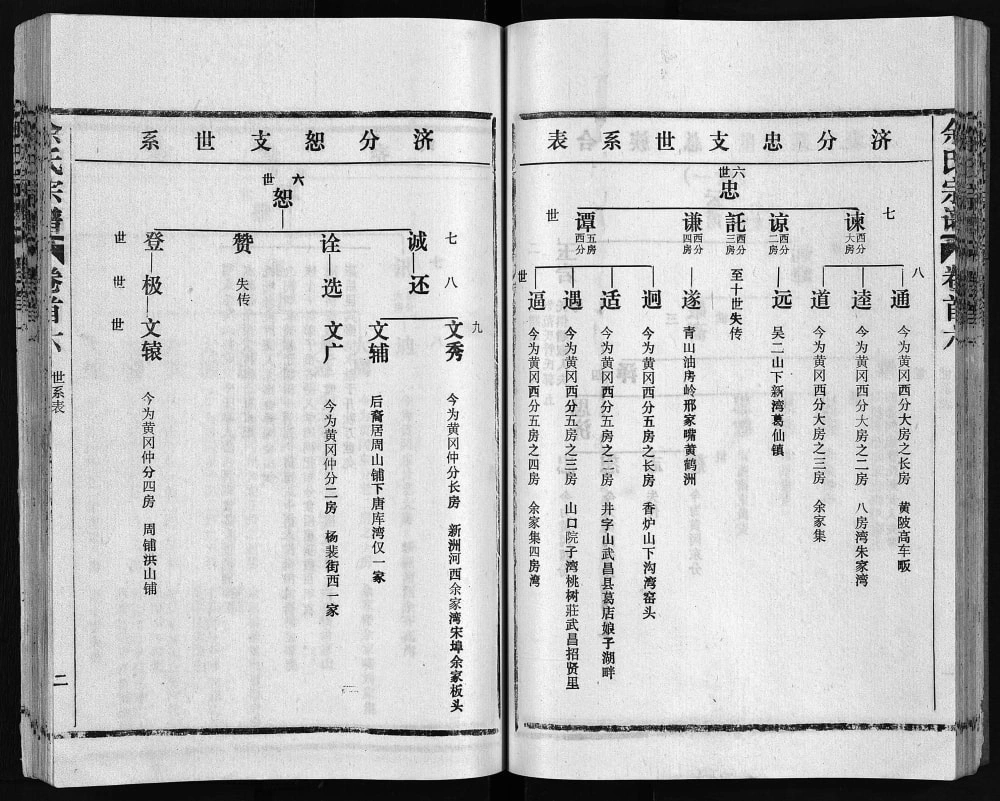 余氏宗谱
卷首六
济分忠支世系表
六世
忠
七世
谏 西分大房
谅 西分二房
託 西分三房
谦 西分四房
谭 西分五房
八世
通 今为黄冈西分大房之长房 黄陂高车畈
逵 今为黄冈西分大房之二房 八房湾朱家湾
道 今为黄冈西分大房之三房 余家集
远 吴二山下新湾葛仙镇
至十世失传
遂 青山油房岭邢家嘴黄鹤洲
迥 今为黄冈西分五房之长房 香炉山下沟湾窑头
适 今为黄冈西分五房之二房 井字山武昌县葛店娘子湖畔
遇 今为黄冈西分五房之三房 山口院子湾桃树莊武昌招贤里
逼 今为黄冈西分五房之四房 余家集四房湾
济分恕支世系
六世
恕
七世
诚
诠
赞 失传
登
八世
还
选
极
九世
文秀 今为黄冈仲分长房 新洲河西余家湾宋埠余家板头
文辅 后裔居周山铺下唐库湾仅一家
文广 今为黄冈仲分二房 杨裴街西一家
文辕 今为黄冈仲分四房 周铺洪山铺
余氏宗谱
卷首六
世系表
二